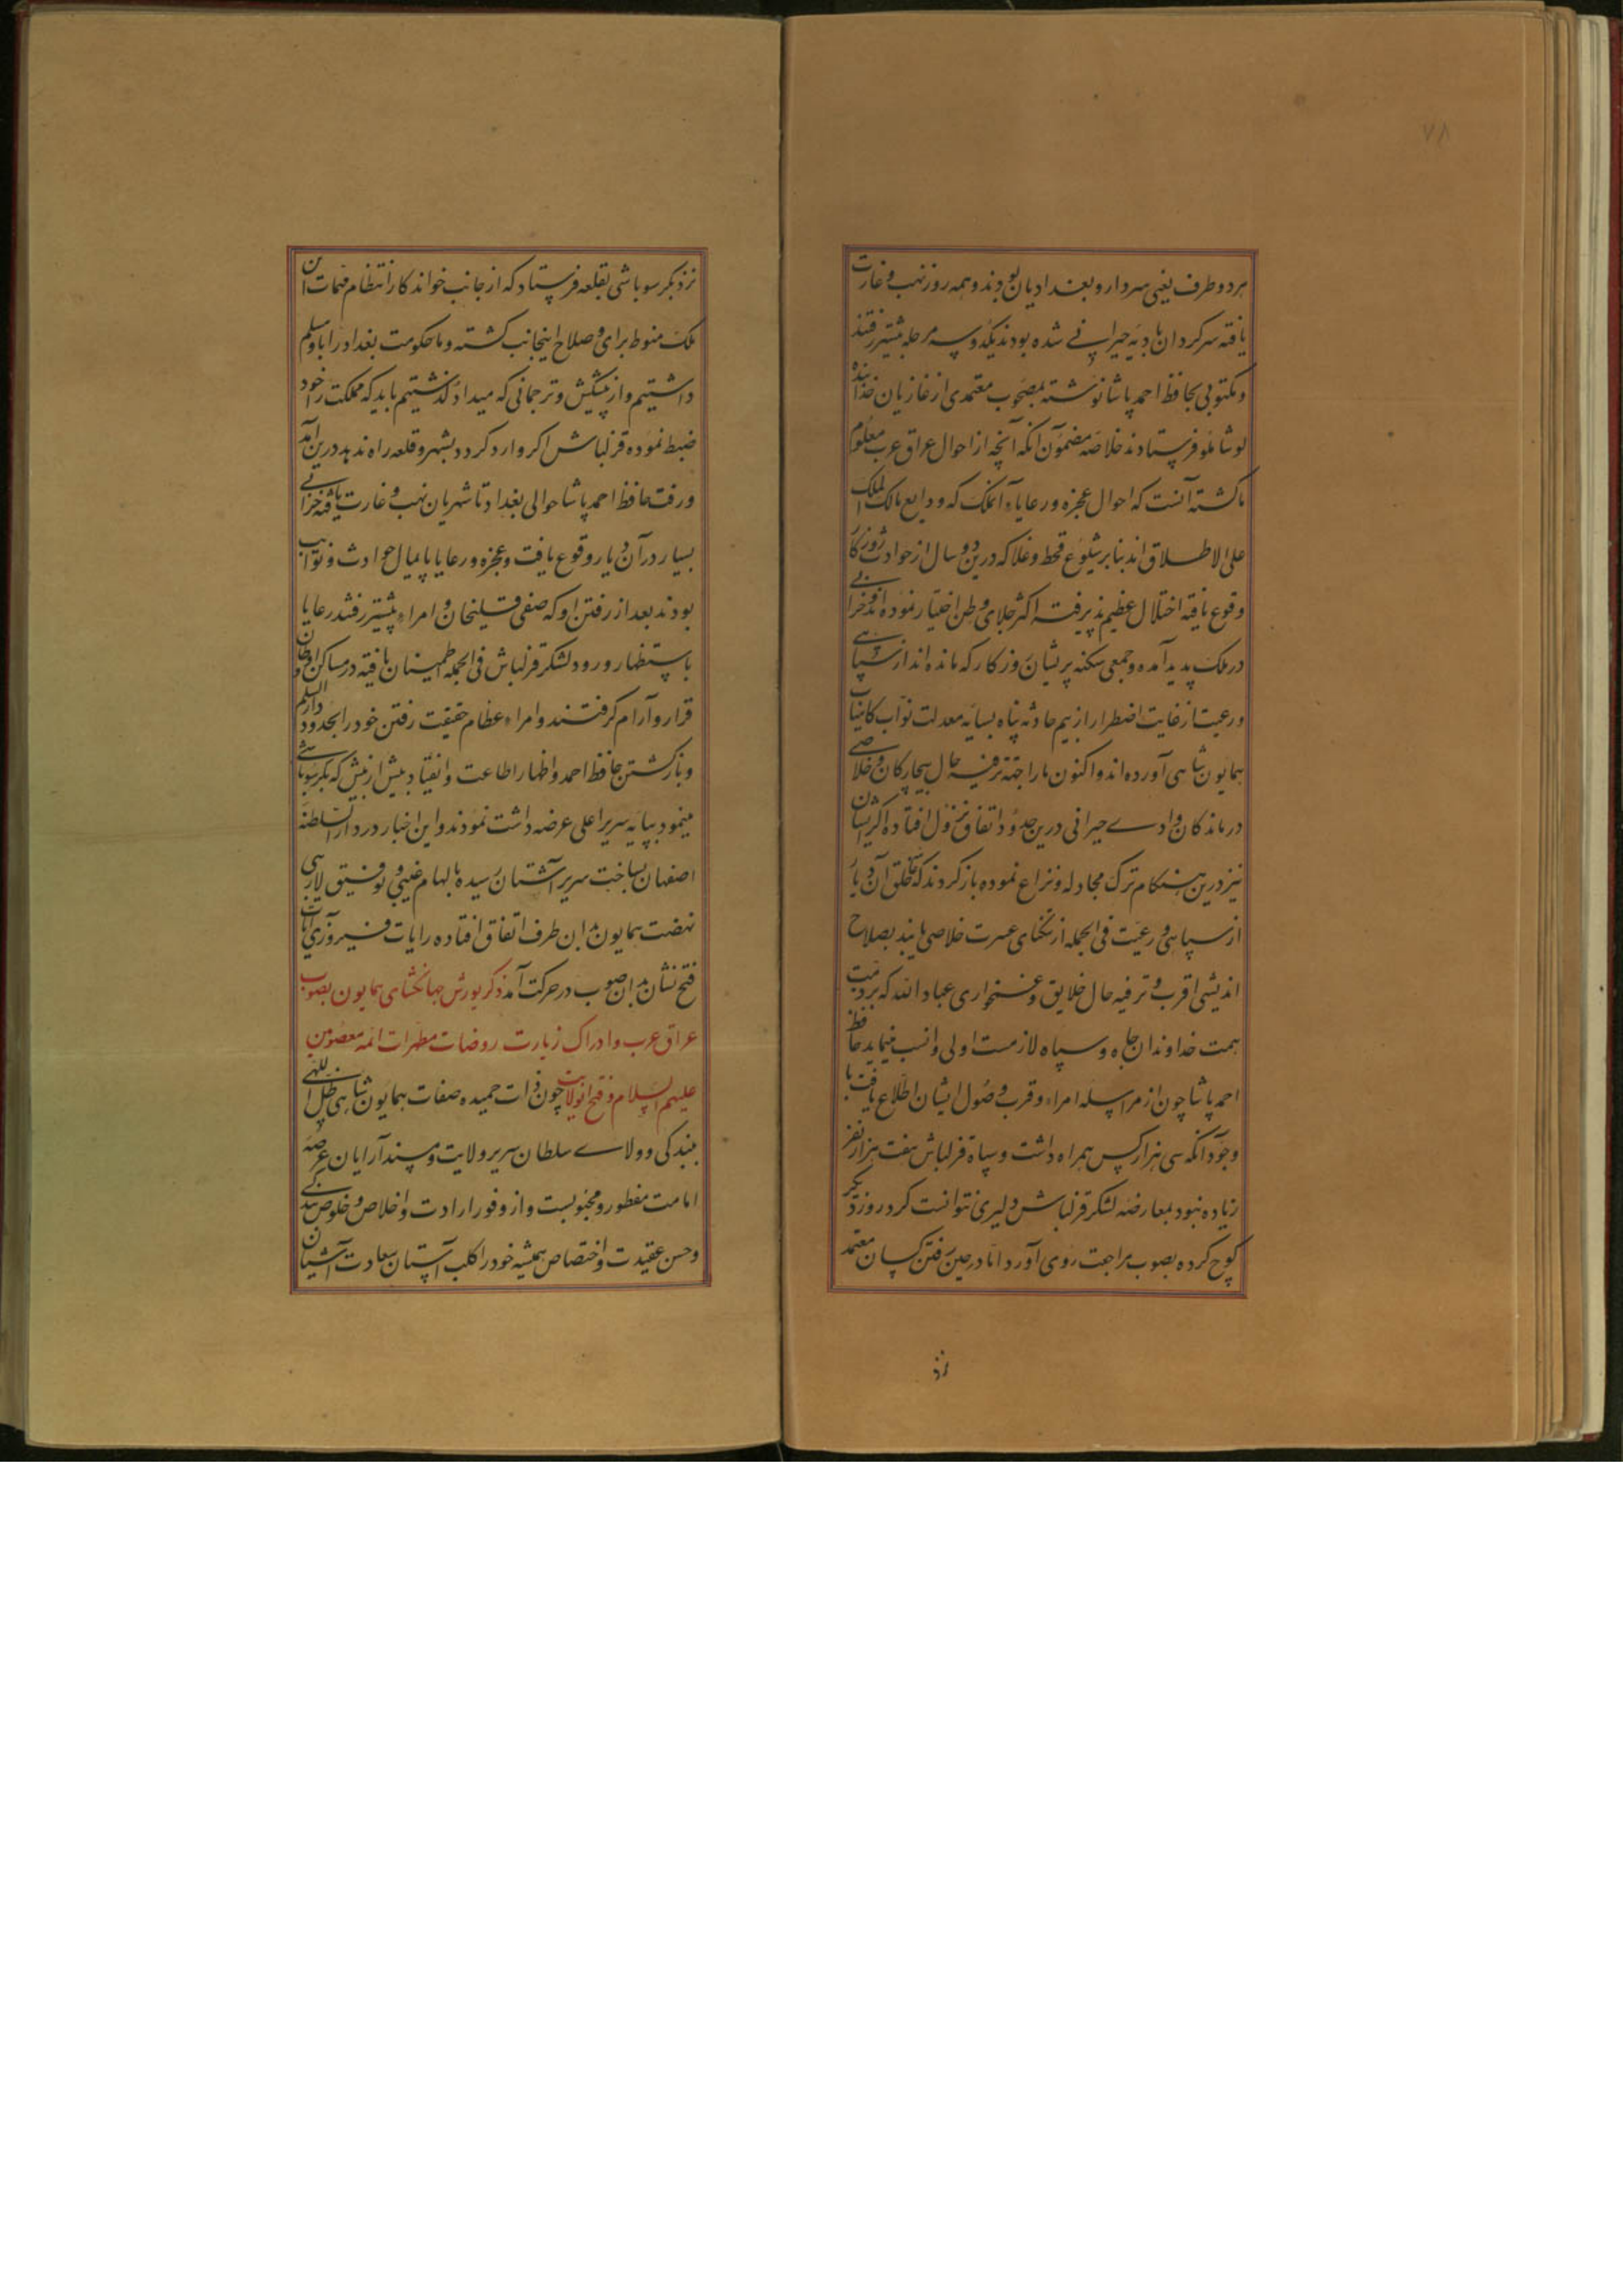 ۷۸
هر دو طرف یعنی سردار و بغدادیان بودند و همه روز نهب و غارت
یافته سرکردان بادیه حیرانی شده بودند یکدو سه مرحله پیشتر رفتند
و مکتوبی بحافظ احمد پاشا نوشته بمصحوب معتمدی از غازیان خدابنده
لو شاملو فرستادند خلاصه مضمون آنکه آنچه از احوال عراق عرب معلوم
ما کشته آنست که احوال عجزه و رعایاء آنملک که ودایع مالک الملک
علی الاطلاق اند بنابر شیوع قحط و غلا که درین دو سال از حوادث روزکار
وقوع یافته اختلال عظیم پذیرفته اکثر جلای وطن اختیار نموده اند و خرابی
در ملک پدید آمده و جمعی سکنه پریشان روزکار که مانده اند از سپاهی
و رعیت از غایت اضطرار از بیم حادثه پناه بسایه معدلت نواب کامیاب
همایون شاهی آورده اند و اکنون ما را جهة ترفیه حال بیچارکان و خلاصی
درماندکان وادی حیرانی درین حدود اتفاق نزول افتاده اگر ایشان
نیز درین هنکام ترک مجادله و نزاع نموده باز کردند که خلق آن دیار
از سپاهی و رعیت فی الجمله از تنکنای عسرت خلاصی یابند بصلاح
اندیشی اقرب و ترفیه حال خلایق و غمخواری عباد الله که بر ذمت
همت خداوندان جاه و سپاه لازمست اولی و انسب مینماید حافظ
احمد پاشا چون از مراسله امراء و قرب وصول ایشان اطلاع یافت با
وجود آنکه سی هزار کس همراه داشت و سپاه قزلباش هفت هزار نفر
زیاده نبود بمعارضه لشکر قزلباش دلیری نتوانست کرد روز دیکر
کوچ کرده بصوب مراجعت روی آورد اما در حین رفتن کسان معتمد
نزد
نزد بکر سوباشی بقلعه فرستاد که از جانب خواندکار انتظام مهمات این
ملک منوط برای و صلاح اینجانب کشته و ما حکومت بغداد را باو مسلم
داشتیم و از پیشکش و ترجمانی که میداد کذشتیم باید که مملکت را خود
ضبط نموده قزلباش اکر وارد کردد بشهر و قلعه راه ندهد درین آمد
و رفت حافظ احمد پاشا حوالی بغداد تا شهربان نهب و غارت یافته خرابی
بسیار در آن دیار وقوع یافت و عجزه و رعایا پایمال حوادث و نوایب
بودند بعد از رفتن او که صفی قلیخان و امراء پیشتر رفتند رعایا
باستظهار ورود لشکر قزلباش فی الجمله اطمینان یافته در مساکن و اوطان
قرار و آرام کرفتند و امراء عظام حقیقت رفتن خود را بحدود دار السلم
و بازکشتن حافظ احمد و اظهار اطاعت و انقیاد بیش از پیش که بکر سوباشی
مینمود بپایه سریر اعلی عرضه داشت نمودند و این اخبار در دار السلطنه
اصفهان بساحت سریر آشتان رسیده بالهام غیبی و توفیق لاریبی
نهضت همایون بدان طرف اتفاق افتاده رایات فیروزی آیات
فتح نشان بدان صوب در حرکت آمد ذکر یورش جهانکشای همایون بصوب
عراق عرب و ادراک زیارت روضات مطهرات ائمه معصومین
علیهم السلام و فتح آنولایت چون ذات حمیده صفات همایون شاهی ظل اللهی
ببندکی و ولاے سلطان سریر ولایت و مسند آرایان عرصه
امامت مفطور و مجبولست و از وفور ارادت و اخلاص و خلوص بندکی
و حسن عقیدت و اختصاص همیشه خود را کلب آستان سعادت آشیان